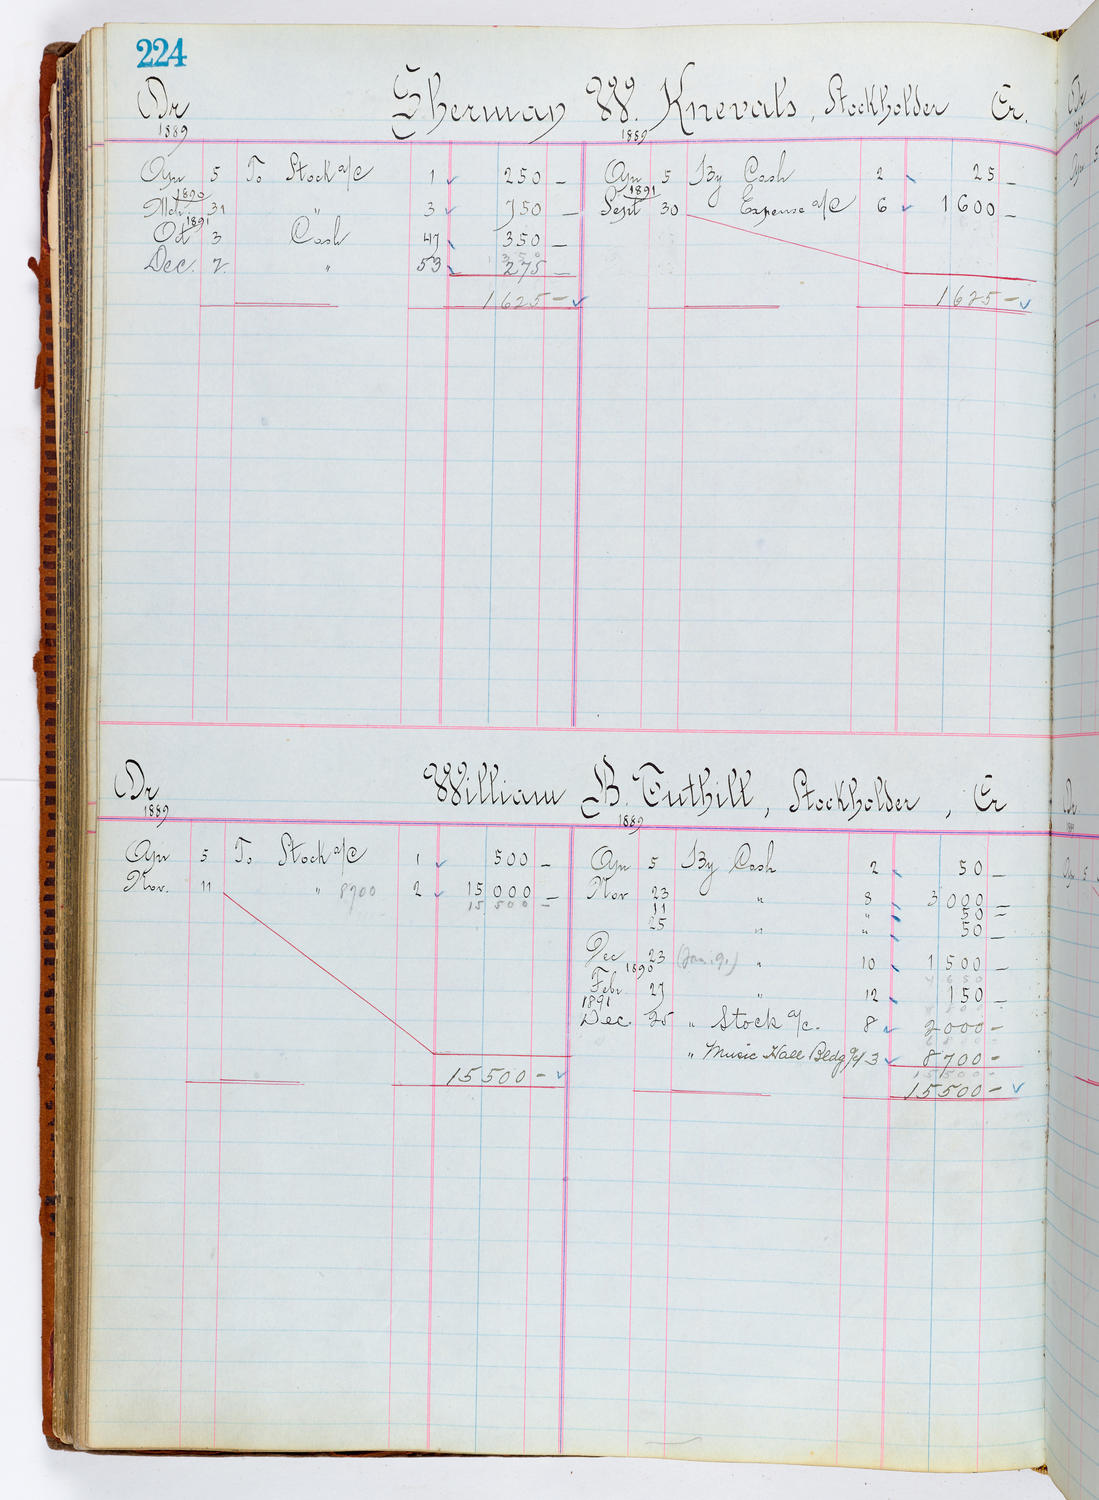 224
Dr Sherman W. Knevals, Stockholder Cr.
1889 1889
Apr 5 To Stock a/c 1 250 — Apr 5 By Cash 2 25 —
1890 1891
Mch. 31 " 3 750 — Sept 30 Expense a/c 6 1600 —
1891
Oct 3 Cash 47 350 —
Dec. 2 " 53 275 —
1625 — 1625 —
Dr William B. Tuthill, Stockholder, Cr
1889 1889
Apr 5 To Stock a/c 1 500 — Apr 5 By Cash 2 50 —
Nov. 11 " 8700 2 15000 — Nov 23 " 8 3000 —
15500 — 11 " 50 —
25 " " 50 —
Dec 23 (Jan. 91) " 10 1500 —
1890
Febr 27 " 12 150 —
1891
Dec. 25 " Stock a/c. 8 2000 —
" Music Hall Bldg a/c 43 8700 —
15500 —
15500 — 15500 —